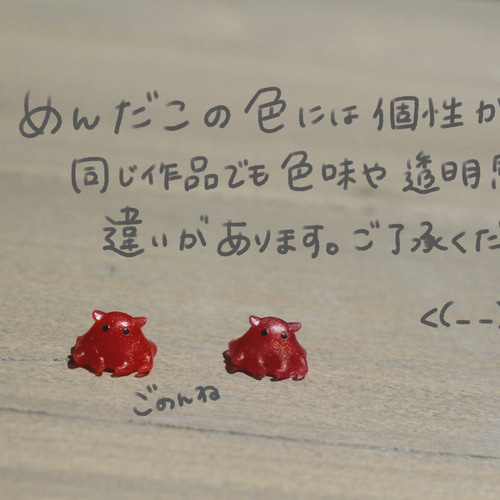 めんだこの色には個性が
同じ作品でも色味や透明
違いがあります。ご了承くだ
<((--)
ごめんね